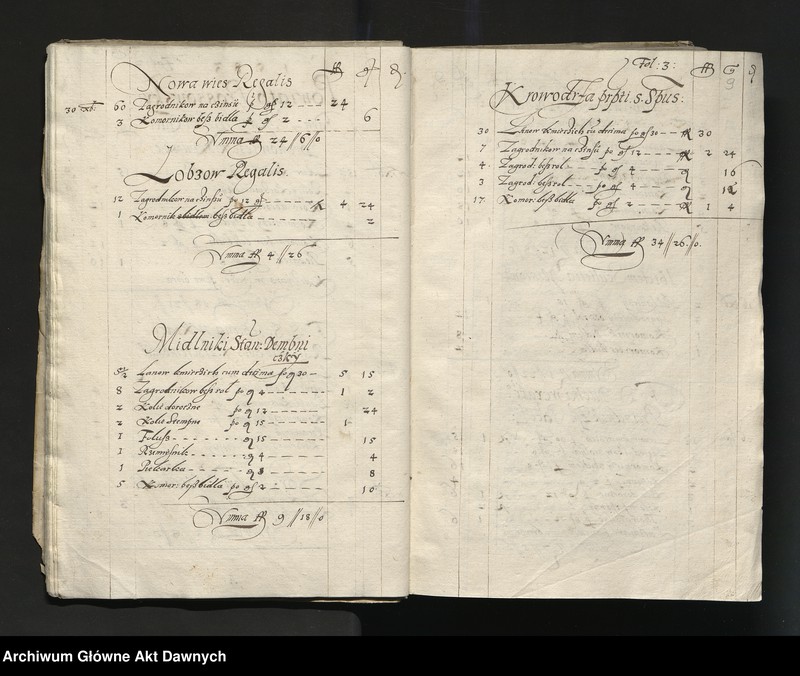 ff g d
Nowa wies Regalis
60 Zagrodnikow na czinsu po gf 12 24
3 Komornikow besz bidla po gf 2 6
Summa ff 24 // 6 // 0
Lobzow Regalis
12 Zagrodnikow na czinsu po 12 gf 4 24
1 Komornik besz bidla 2
Summa ff 4 // 26
Midlniki Stan: Dembni
czky
5½ Lanow kmieczich cum decima po g 30 5 15
8 Zagrodnikow besz rol po g 4 1 2
2 Kolie doroczne po g 12 24
2 Kolie Stempne po g 15 1
1 Folusz g 15 15
1 Rzemiesnik g 4 4
1 Piekarka g 8 8
5 Komor: besz bidla po gf 2 10
Summa ff 9 // 18 // 0
Fol: 3: ff G d
9
Krowodrza prpti S. Spus:
30 Lanow kmieczich cu decima po g 30 ff 30
7 Zagrodnikow na czinsu po gf 12 ff 2 24
4 Zagrod: besz rol po gf 4 g 16
3 Zagrod: besz rol po gf 4 g 12
17 Komor: besz bidla po gf 2 ff 1 4
Summa ff 34 // 26 // 0.
Archiwum Główne Akt Dawnych